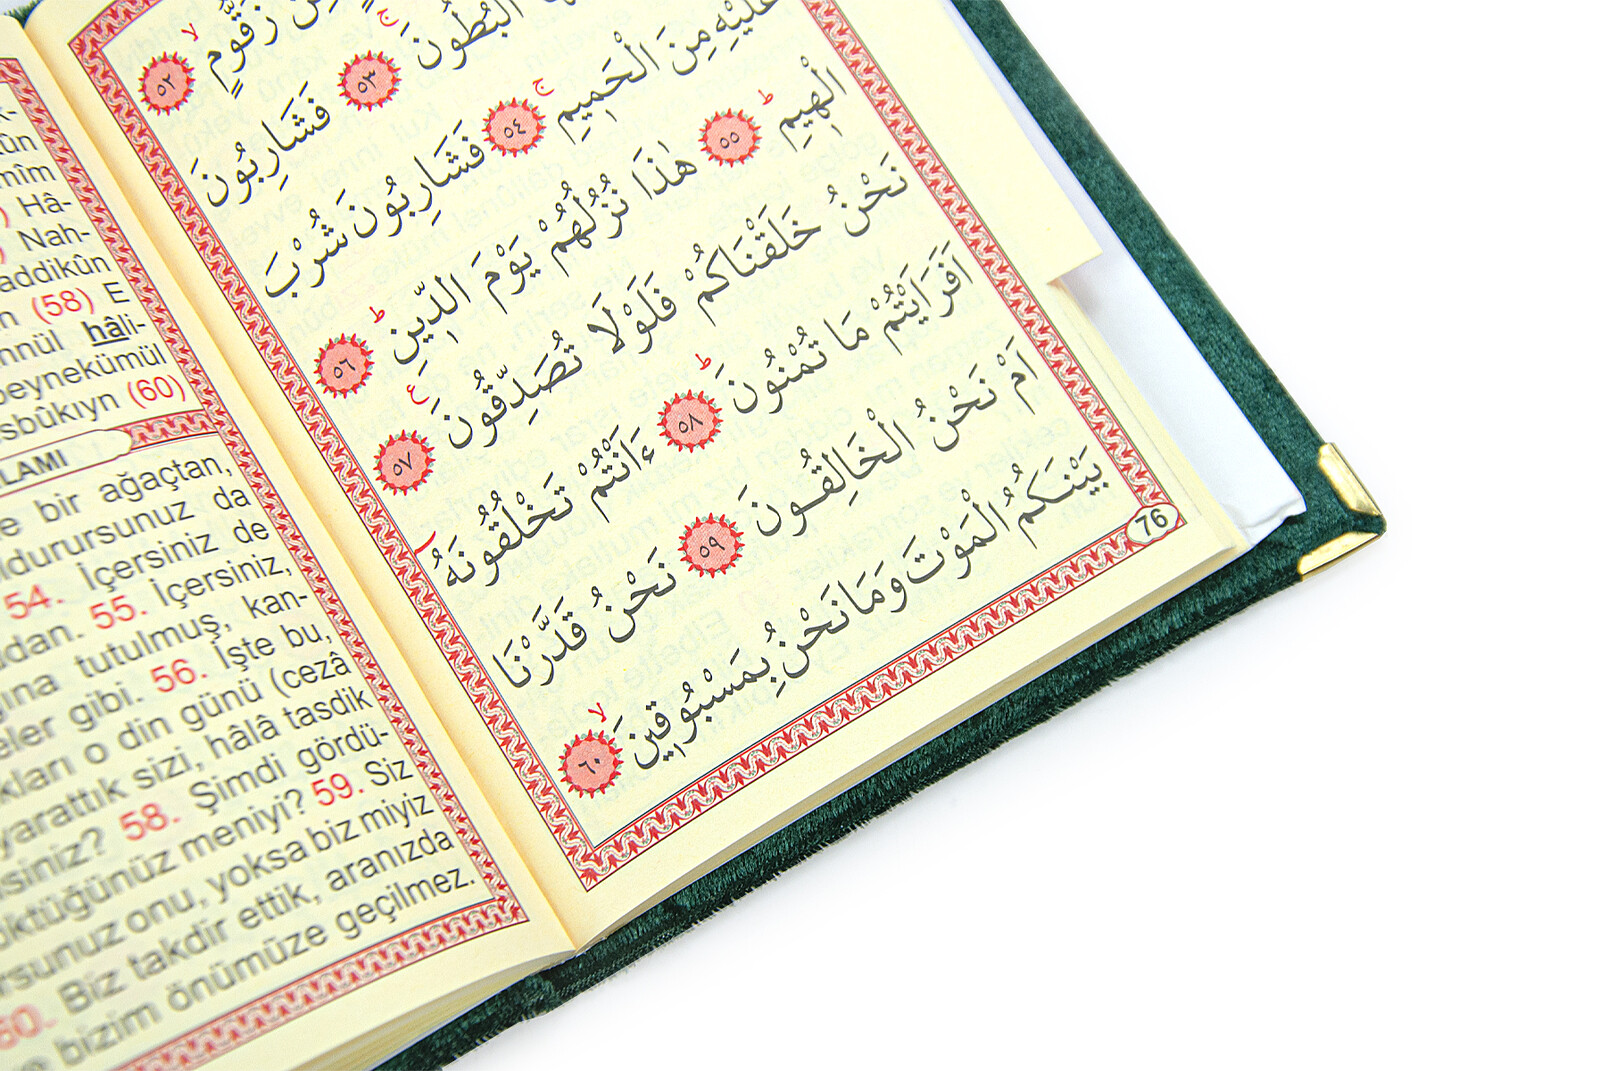 زَقُّومٍ ۙ ﴿٥٢﴾
الْبُطُونَ ۚ ﴿٥٣﴾ فَشَارِبُونَ
عَلَيْهِ مِنَ الْحَمٖيمِ ۚ ﴿٥٤﴾ فَشَارِبُونَ شُرْبَ
الْهٖيمِ ؕ ﴿٥٥﴾ هٰذَا نُزُلُهُمْ يَوْمَ الدّٖينِ ؕ ﴿٥٦﴾
نَحْنُ خَلَقْنَاكُمْ فَلَوْلَا تُصَدِّقُونَ ع ﴿٥٧﴾
اَفَرَاَيْتُمْ مَا تُمْنُونَ ؕ ﴿٥٨﴾ ءَاَنْتُمْ تَخْلُقُونَهُٓ
اَمْ نَحْنُ الْخَالِقُونَ ﴿٥٩﴾ نَحْنُ قَدَّرْنَا
بَيْنَكُمُ الْمَوْتَ وَمَا نَحْنُ بِمَسْبُوقٖينَ ۙ ﴿٦٠﴾
76
Hâ-
Nah-
addikûn
(58) E
nnül hâli-
beynekümül
sbûkıyn (60)
LAMI
bir ağaçtan,
ldurursunuz da
54. İçersiniz de
dan. 55. İçersiniz,
ına tutulmuş, kan-
eler gibi. 56. İşte bu,
kları o din günü (cezâ
yarattık sizi, hâlâ tasdik
siniz? 58. Şimdi gördü-
öktüğünüz meniyi? 59. Siz
rsunuz onu, yoksa biz miyiz
60. Biz takdir ettik, aranızda
bizim önümüze geçilmez.